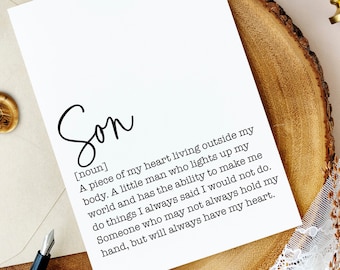 Son
[noun]
A piece of my heart living outside my
body. A little man who lights up my
world and has the ability to make me
do things I always said I would not do.
Someone who may not always hold my
hand, but will always have my heart.